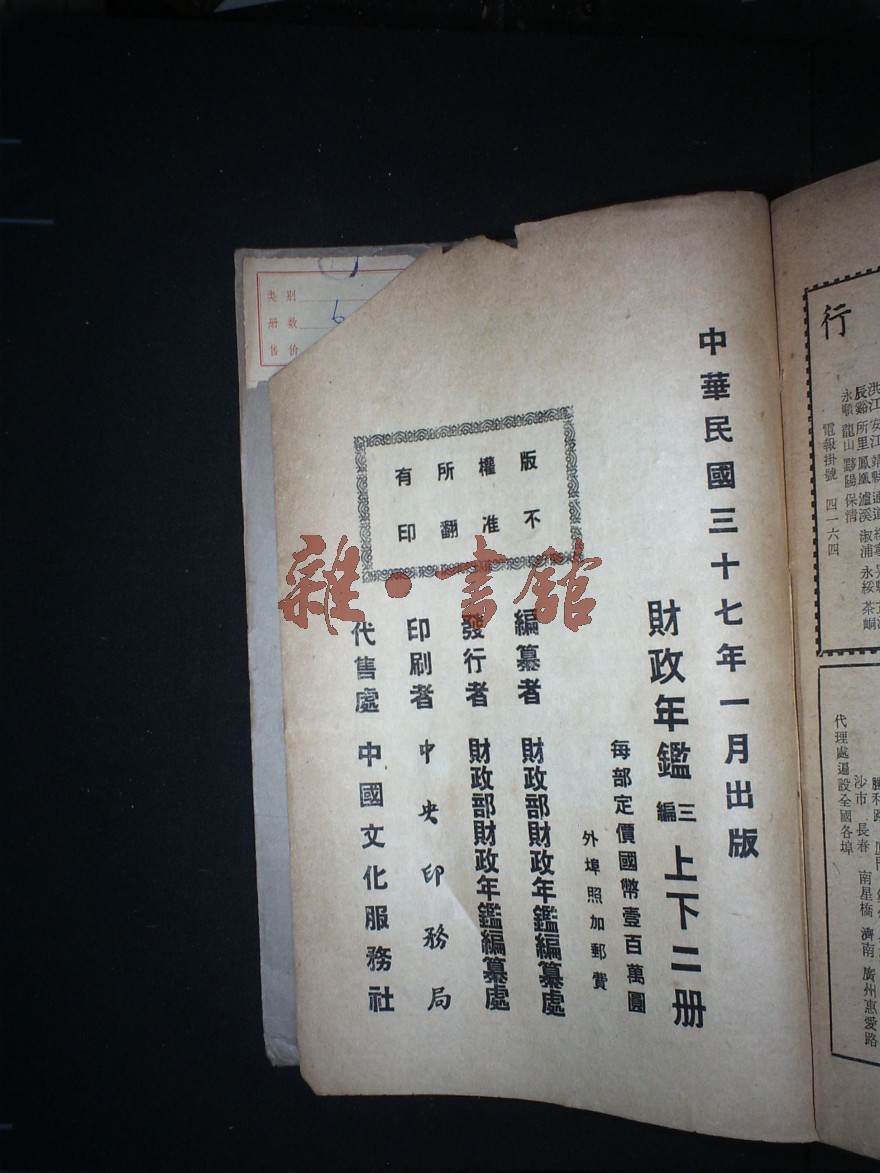 中華民國三十七年一月出版
財政年鑑三編上下二册
每部定價國幣壹百萬圓
外埠照加郵費
版權所有
不准翻印
編纂者 財政部財政年鑑編纂處
發行者 財政部財政年鑑編纂處
印刷者 中央印務局
代售處 中國文化服務社
雜·書館
类别
册数 6
售价
行
永順 龍山 黔陽 保清
電報掛號 四一六四
代理處遍設全國各埠
沙市 長春 南星橋 濟南 廣州惠愛路